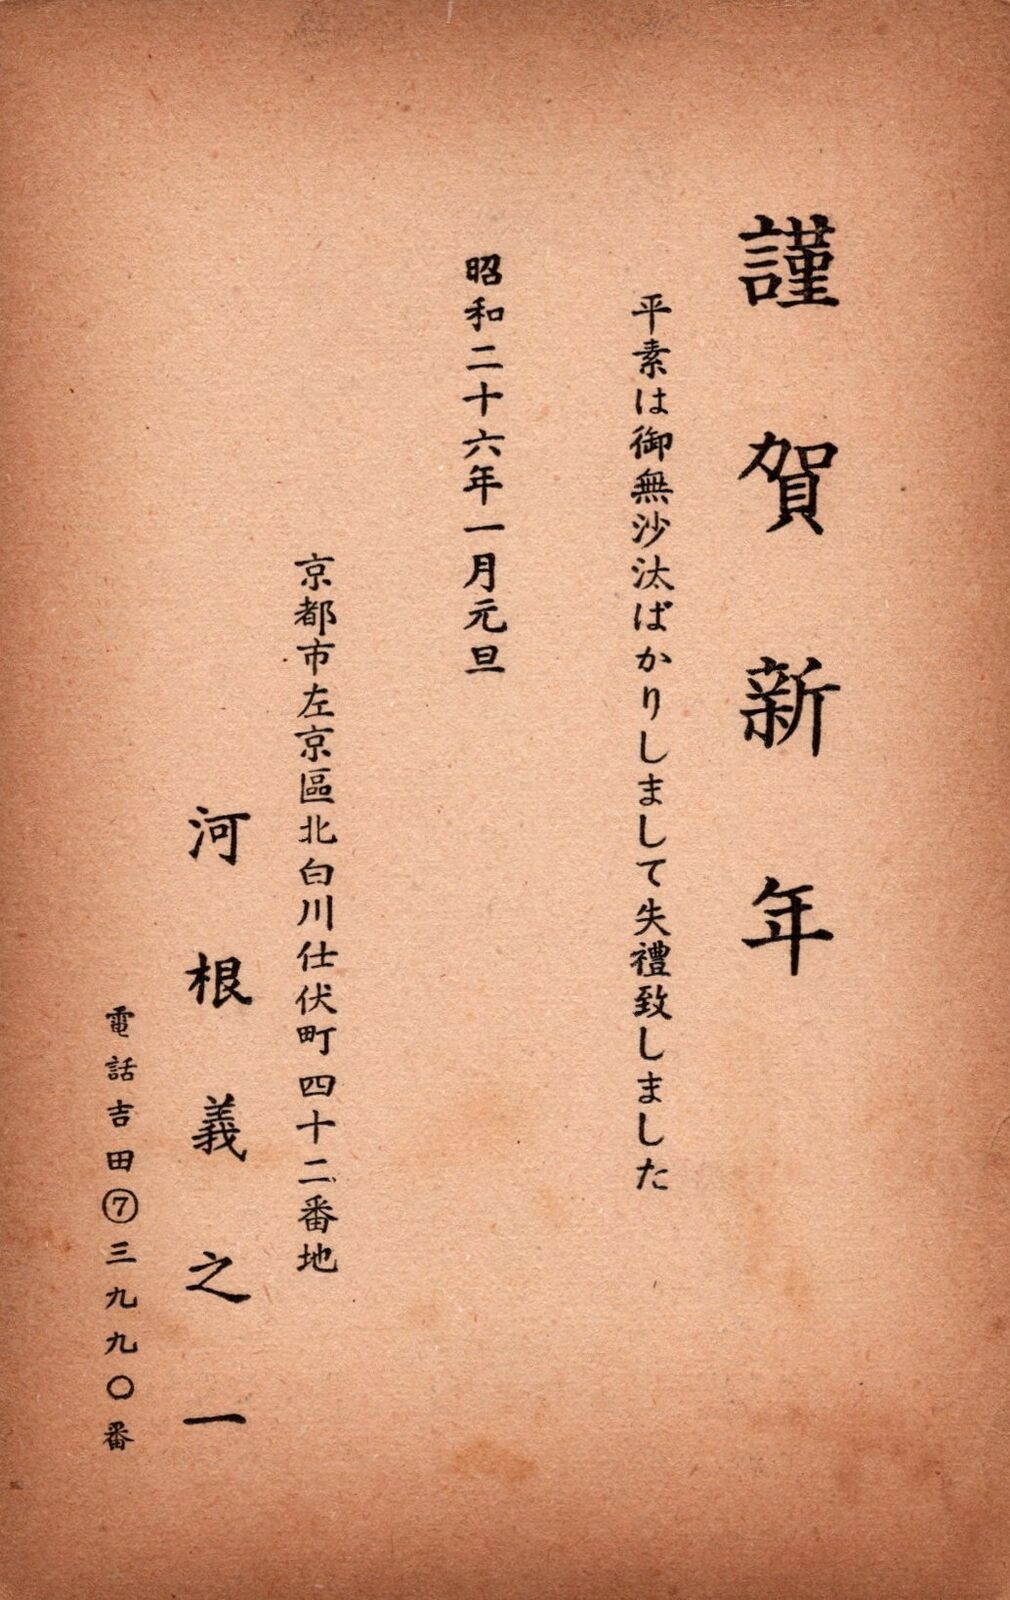 謹賀新年
平素は御無沙汰ばかりしまして失禮致しました
昭和二十六年一月元旦
京都市左京區北白川仕伏町四十二番地
河根義之一
電話吉田⑦三九九〇番